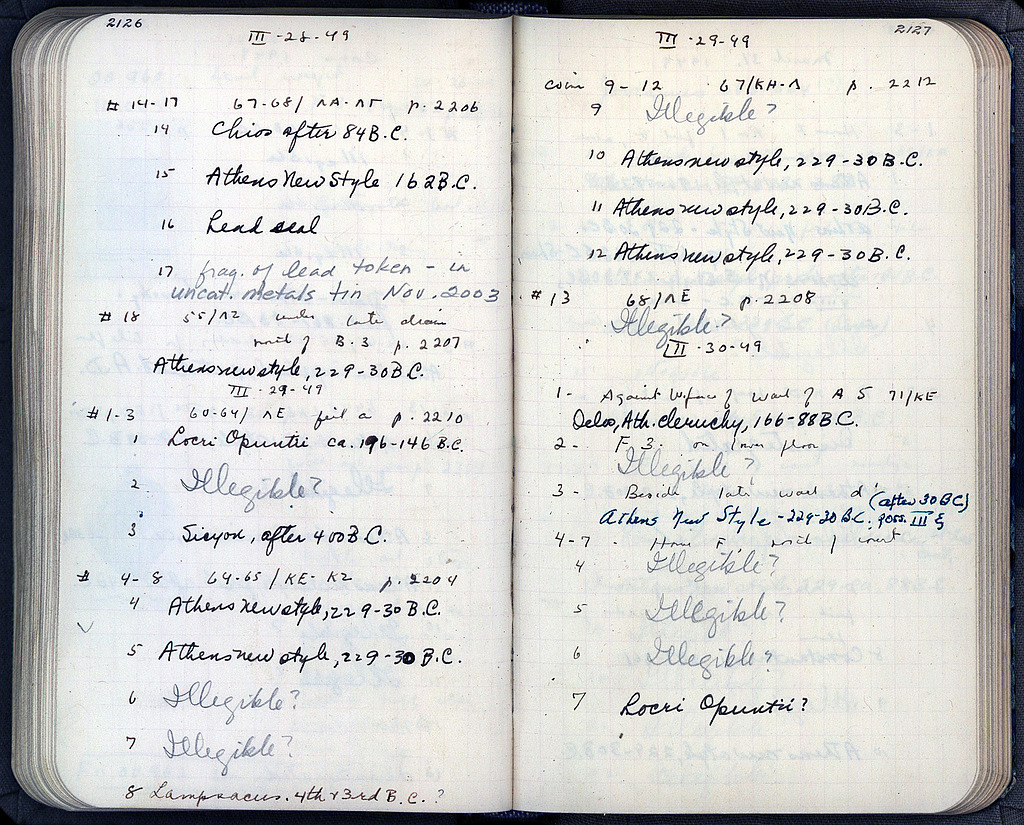 2126
III-28-49
# 14-17 67-68/ΛΑ-ΛΓ p. 2206
14 Chios after 84 B.C.
15 Athens New Style 162 B.C.
16 Lead seal
17 frag. of lead token - in
uncat. metals tin Nov. 2003
# 18 55/ΛΖ under late drain
north of B.3 p. 2207
Athens new style, 229-30 B.C.
III-29-49
#1-3 60-64/ΛΕ fill a p. 2210
1 Locri Opuntii ca. 196-146 B.C.
2 Illegible?
3 Sicyon, after 400 B.C.
# 4-8 64-65/ΚΕ-ΚΖ p. 2204
4 Athens new style, 229-30 B.C.
5 Athens new style, 229-30 B.C.
6 Illegible?
7 Illegible?
8 Lampsacus. 4th & 3rd B.C.?
2127
III-29-49
coin 9-12 67/ΚΗ-Λ p. 2212
9 Illegible?
10 Athens new style, 229-30 B.C.
11 Athens new style, 229-30 B.C.
12 Athens new style, 229-30 B.C.
# 13 68/ΛΕ p. 2208
Illegible?
III-30-49
1- Against W face of wall of A 5 71/ΚΕ
Delos, Ath. cleruchy, 166-88 B.C.
2- F 3. on floor
Illegible?
3- Beside late wall d
(after 30 BC)
Athens New Style - 229-30 B.C. poss. III
4-7 - F, north of court
4 Illegible?
5 Illegible?
6 Illegible?
7 Locri Opuntii?